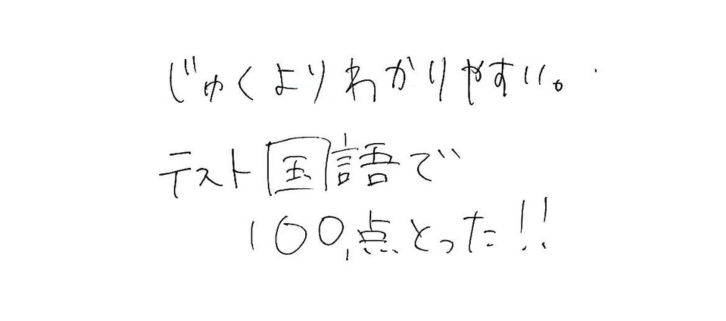 じゅくよりわかりやすい。
テスト国語で
100点とった!!